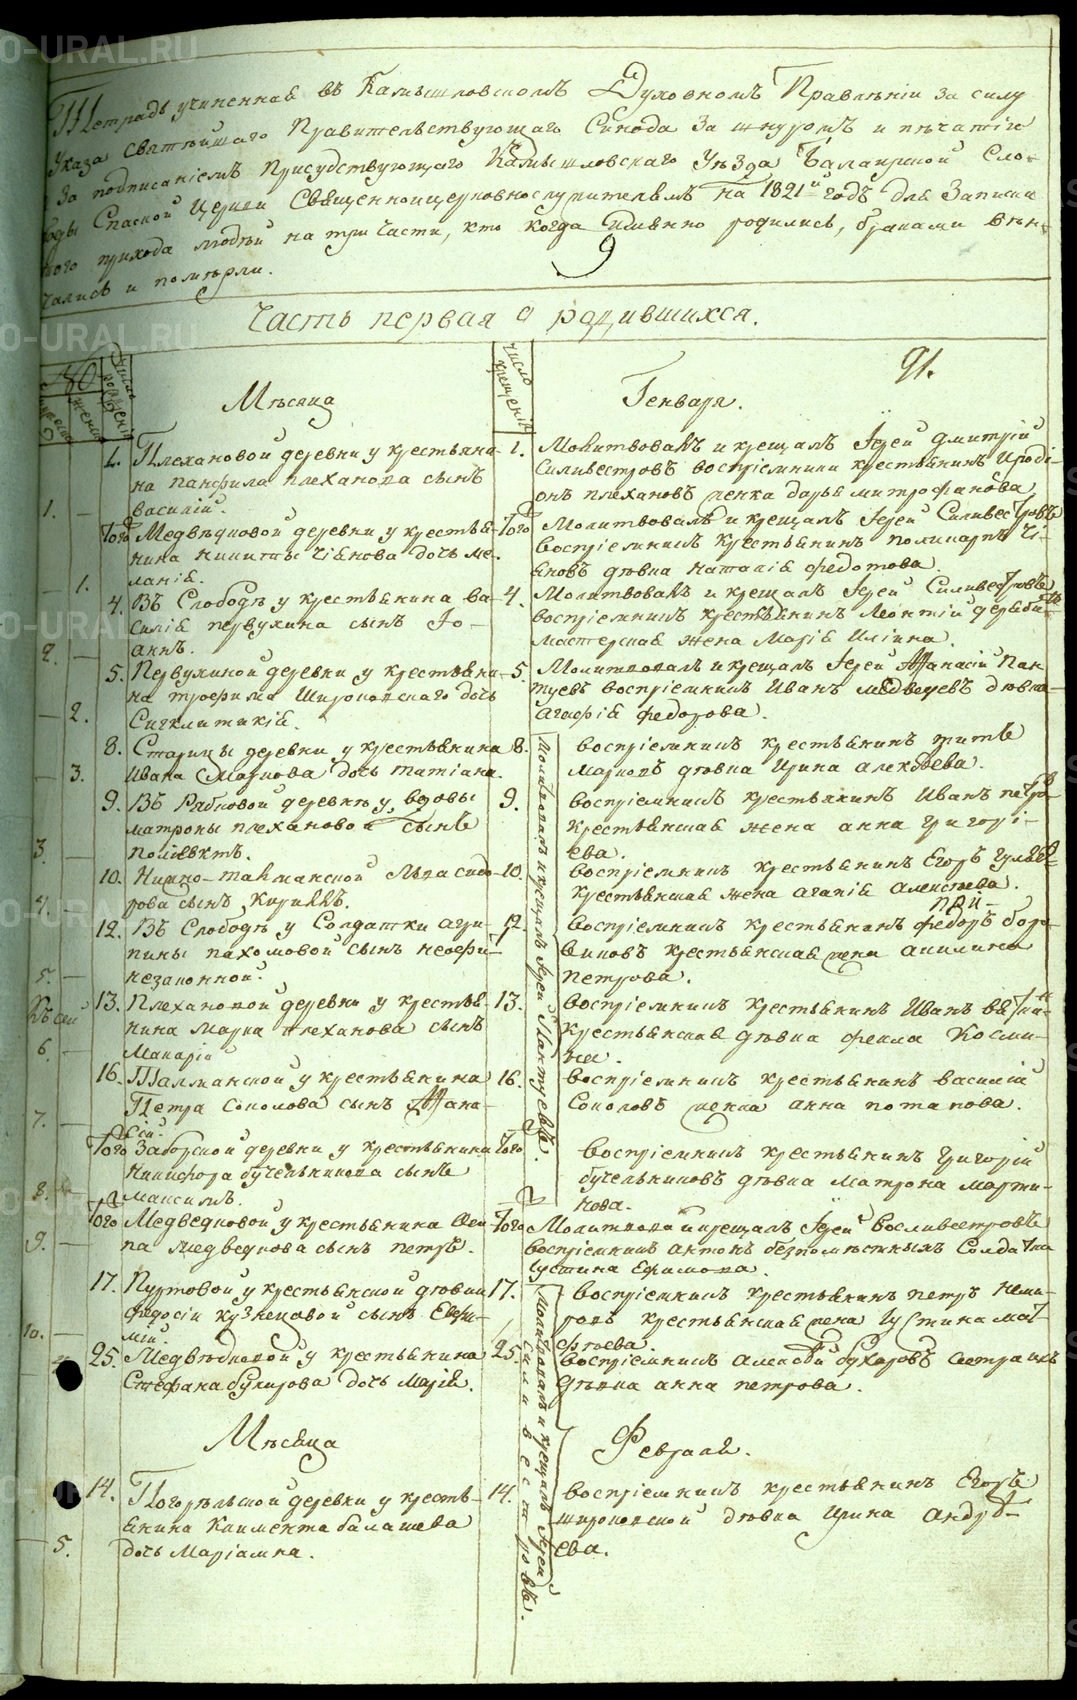 Тетрадь учиненная въ Камышловскомъ Духовномъ Правленіи за силу
Указа Святѣйшаго Правительствующаго Синода за шнуромъ и печатію
за подписаніемъ Присудствующаго Камышловскаго Уѣзда Балаирской Сло-
боды Спаской Церкви Священноцерковнослужителямъ на 1821й годъ для Записки
того прихода людей на три части, кто когда имянно родились, браками вѣн-
чались и померли.
9
Часть первая о родившихся.
91.
число рожденій
число крещенія
Мѣсяца
Генваря.
1. Плехановой деревни у крестьяни-
на Панфила Плеханова сынъ
василій.
1. Молитвовалъ и крещалъ Іерей Дмитрій
Силивестровъ воспріемники крестьянинъ Ироді-
онъ Плехановъ женка дарья митрофанова
1.
Того Медвѣдковой деревни у крестья-
нина Никиты дочь ме-
ланія.
Того Молитвовалъ и крещалъ Іерей Силивестровъ
воспріемникъ крестьянинъ поликарпъ
дѣвка наталія федотова.
1.
4. Въ Слободѣ у крестьянина ва-
силія первухина сынъ Іо-
аннъ.
4. Молитвовалъ и крещалъ Іерей Силивестровъ
воспріемникъ крестьянинъ Леонтій
мастерская жена Марія Ильина.
2.
5. Первухиной деревни у крестьяни-
на трофима Широковскаго дочь
Сигклитикія.
5. Молитвовалъ и крещалъ Іерей Афанасій Пан-
туевъ воспріемникъ Иванъ медведевъ дѣвка
агафія федорова.
2.
8. Старицы деревни у крестьянина
Ивана Маркова дочь татіана.
8. воспріемникъ крестьянинъ
Марковъ дѣвка Ирина алексѣева.
3.
9. Въ Рябковой деревнѣ у вдовы
матроны плехановой сынъ
поліевктъ.
9. воспріемникъ крестьянинъ Иванъ
крестьянская жена анна григорі-
ева.
3.
10. сидо-
рова сынъ Кириллъ.
10. воспріемникъ крестьянинъ Егоръ
крестьянская жена агапія алексѣева.
4.
12. Въ Слободѣ у Солдатки агри-
пины пахомовой сынъ
незаконной.
12. воспріемникъ крестьянинъ федоръ
крестьянская жена акилина
петрова.
5.
13. Плехановой деревни у крестья-
нина Марка плеханова сынъ
Макарій
13. воспріемникъ крестьянинъ Иванъ
крестьянская дѣвка фекла Косми-
на.
6.
16. Талманской у крестьянина
Петра Соколова сынъ Афана-
сій.
16. воспріемникъ крестьянинъ василій
Соколовъ женка анна потапова.
7.
Того Заборской деревни у крестьянина
Никифора бутельникова сынъ
максимъ.
Того воспріемникъ крестьянинъ григорій
бутельниковъ дѣвка матрона марти-
нова.
8.
Молитвовалъ и крещалъ Іерей Пантуевъ.
Того Медведковой у крестьянина
медведкова сынъ петръ.
Того Молитвовалъ и крещалъ Іерей
воспріемникъ антонъ безпомѣстныхъ
Устина Ефимова.
9.
17. Пуртовой у крестьянской дѣвки
федосіи кузнецовой сынъ Евфи-
мій.
17. воспріемникъ крестьянинъ петръ
крестьянская жена Устина мат-
фѣева.
10.
25. Медвѣдковой у крестьянина
Стефана бухарова дочь Марія.
25. воспріемникъ алексѣй бухаровъ сестра ихъ
дѣвка анна петрова.
Мѣсяца
Февраля.
14. Погорѣльской деревни у кресть-
янина Климента балашева
дочь Маріамна.
14. воспріемникъ крестьянинъ Егоръ
широковской дѣвка Ирина андрѣ-
ева.
5.
Молитвовалъ и крещалъ Іерей
Силивестровъ.